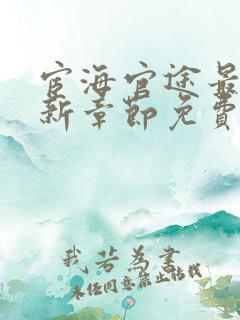 宦海官途最
新章節免費
我若为书
未经同意禁止转载